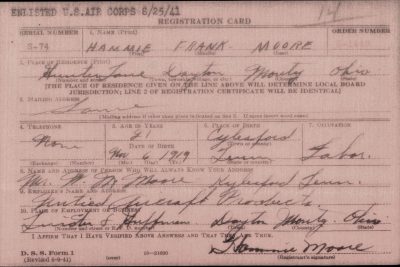 ENLISTED U.S. AIR CORPS 8/25/41
14
REGISTRATION CARD
SERIAL NUMBER 1. NAME (Print) ORDER NUMBER
S-74 HAMMIE FRANK MOORE
2. PLACE OF RESIDENCE (Print)
Lane Dayton Montg Ohio
(Number and street) (Town, township, village, or city) (County) (State)
[THE PLACE OF RESIDENCE GIVEN ON THE LINE ABOVE WILL DETERMINE LOCAL BOARD
JURISDICTION; LINE 2 OF REGISTRATION CERTIFICATE WILL BE IDENTICAL]
3. MAILING ADDRESS
Same
[Mailing address if other than place indicated on line 2. If same insert word same]
4. TELEPHONE 5. AGE IN YEARS 6. PLACE OF BIRTH 7. OCCUPATION
None 21 Kylesford
DATE OF BIRTH (Town or county)
Nov 6 1919 Tenn Labor.
(Exchange) (Number) (Mo.) (Day) (Yr.) (State or country)
8. NAME AND ADDRESS OF PERSON WHO WILL ALWAYS KNOW YOUR ADDRESS
Mr. M Moore Kylesford Tenn.
9. EMPLOYER'S NAME AND ADDRESS
United Aircraft Products
10. PLACE OF EMPLOYMENT OR BUSINESS
Huffman Dayton Montg. Ohio
(Number and street or R. F. D. number) (Town) (County) (State)
I AFFIRM THAT I HAVE VERIFIED ABOVE ANSWERS AND THAT THEY ARE TRUE.
D. S. S. Form 1
(Revised 6-9-41) (over) 16-21630 Hammie Moore
(Registrant's signature)